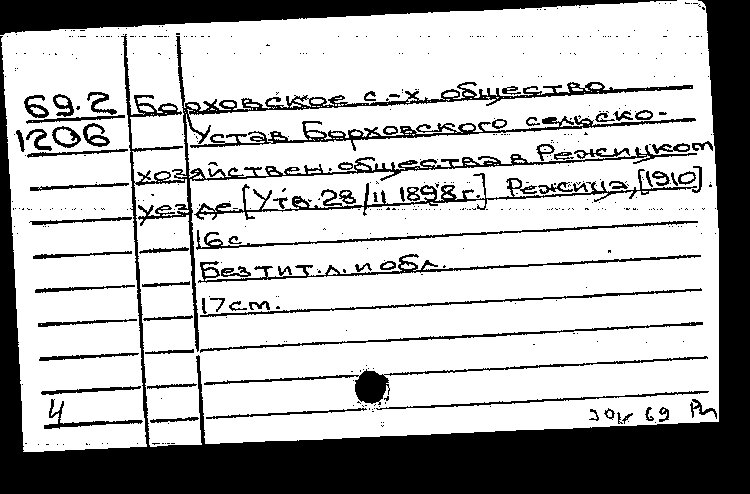 69.2 Борховское с.-х. общество.
1206 Устав Борховского сельско-
хозяйствен. общества в Режицком
уезде. [Утв. 28/II 1898 г.] Режица, [1910].
16 с.
Без тит. л. и обл.
17 см.
4
69